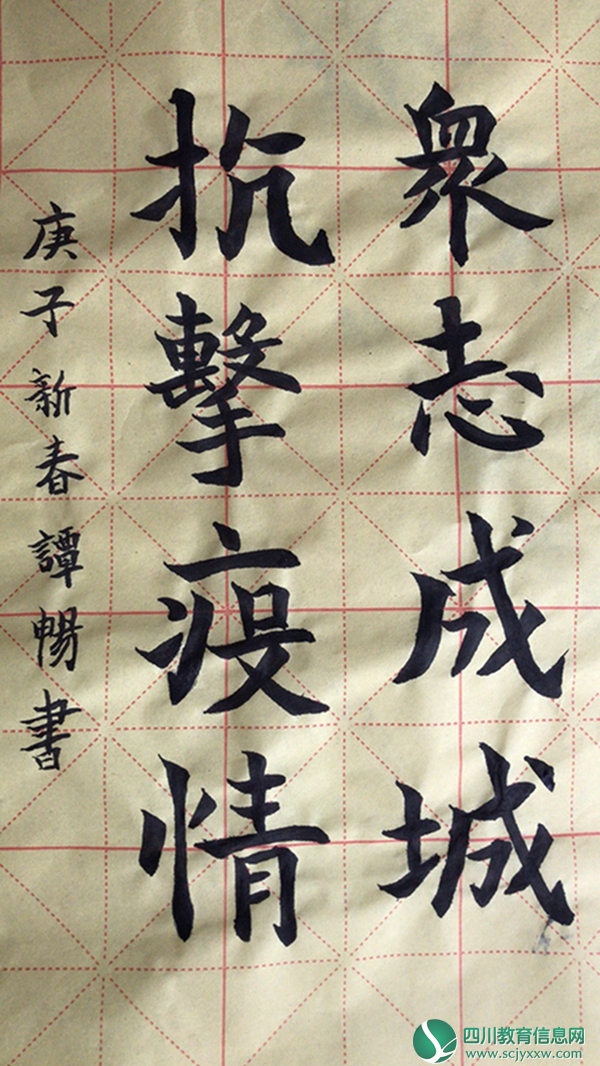 眾志成城
抗擊疫情
庚子新春譚暢書
四川教育信息网
www.scjyxxw.com